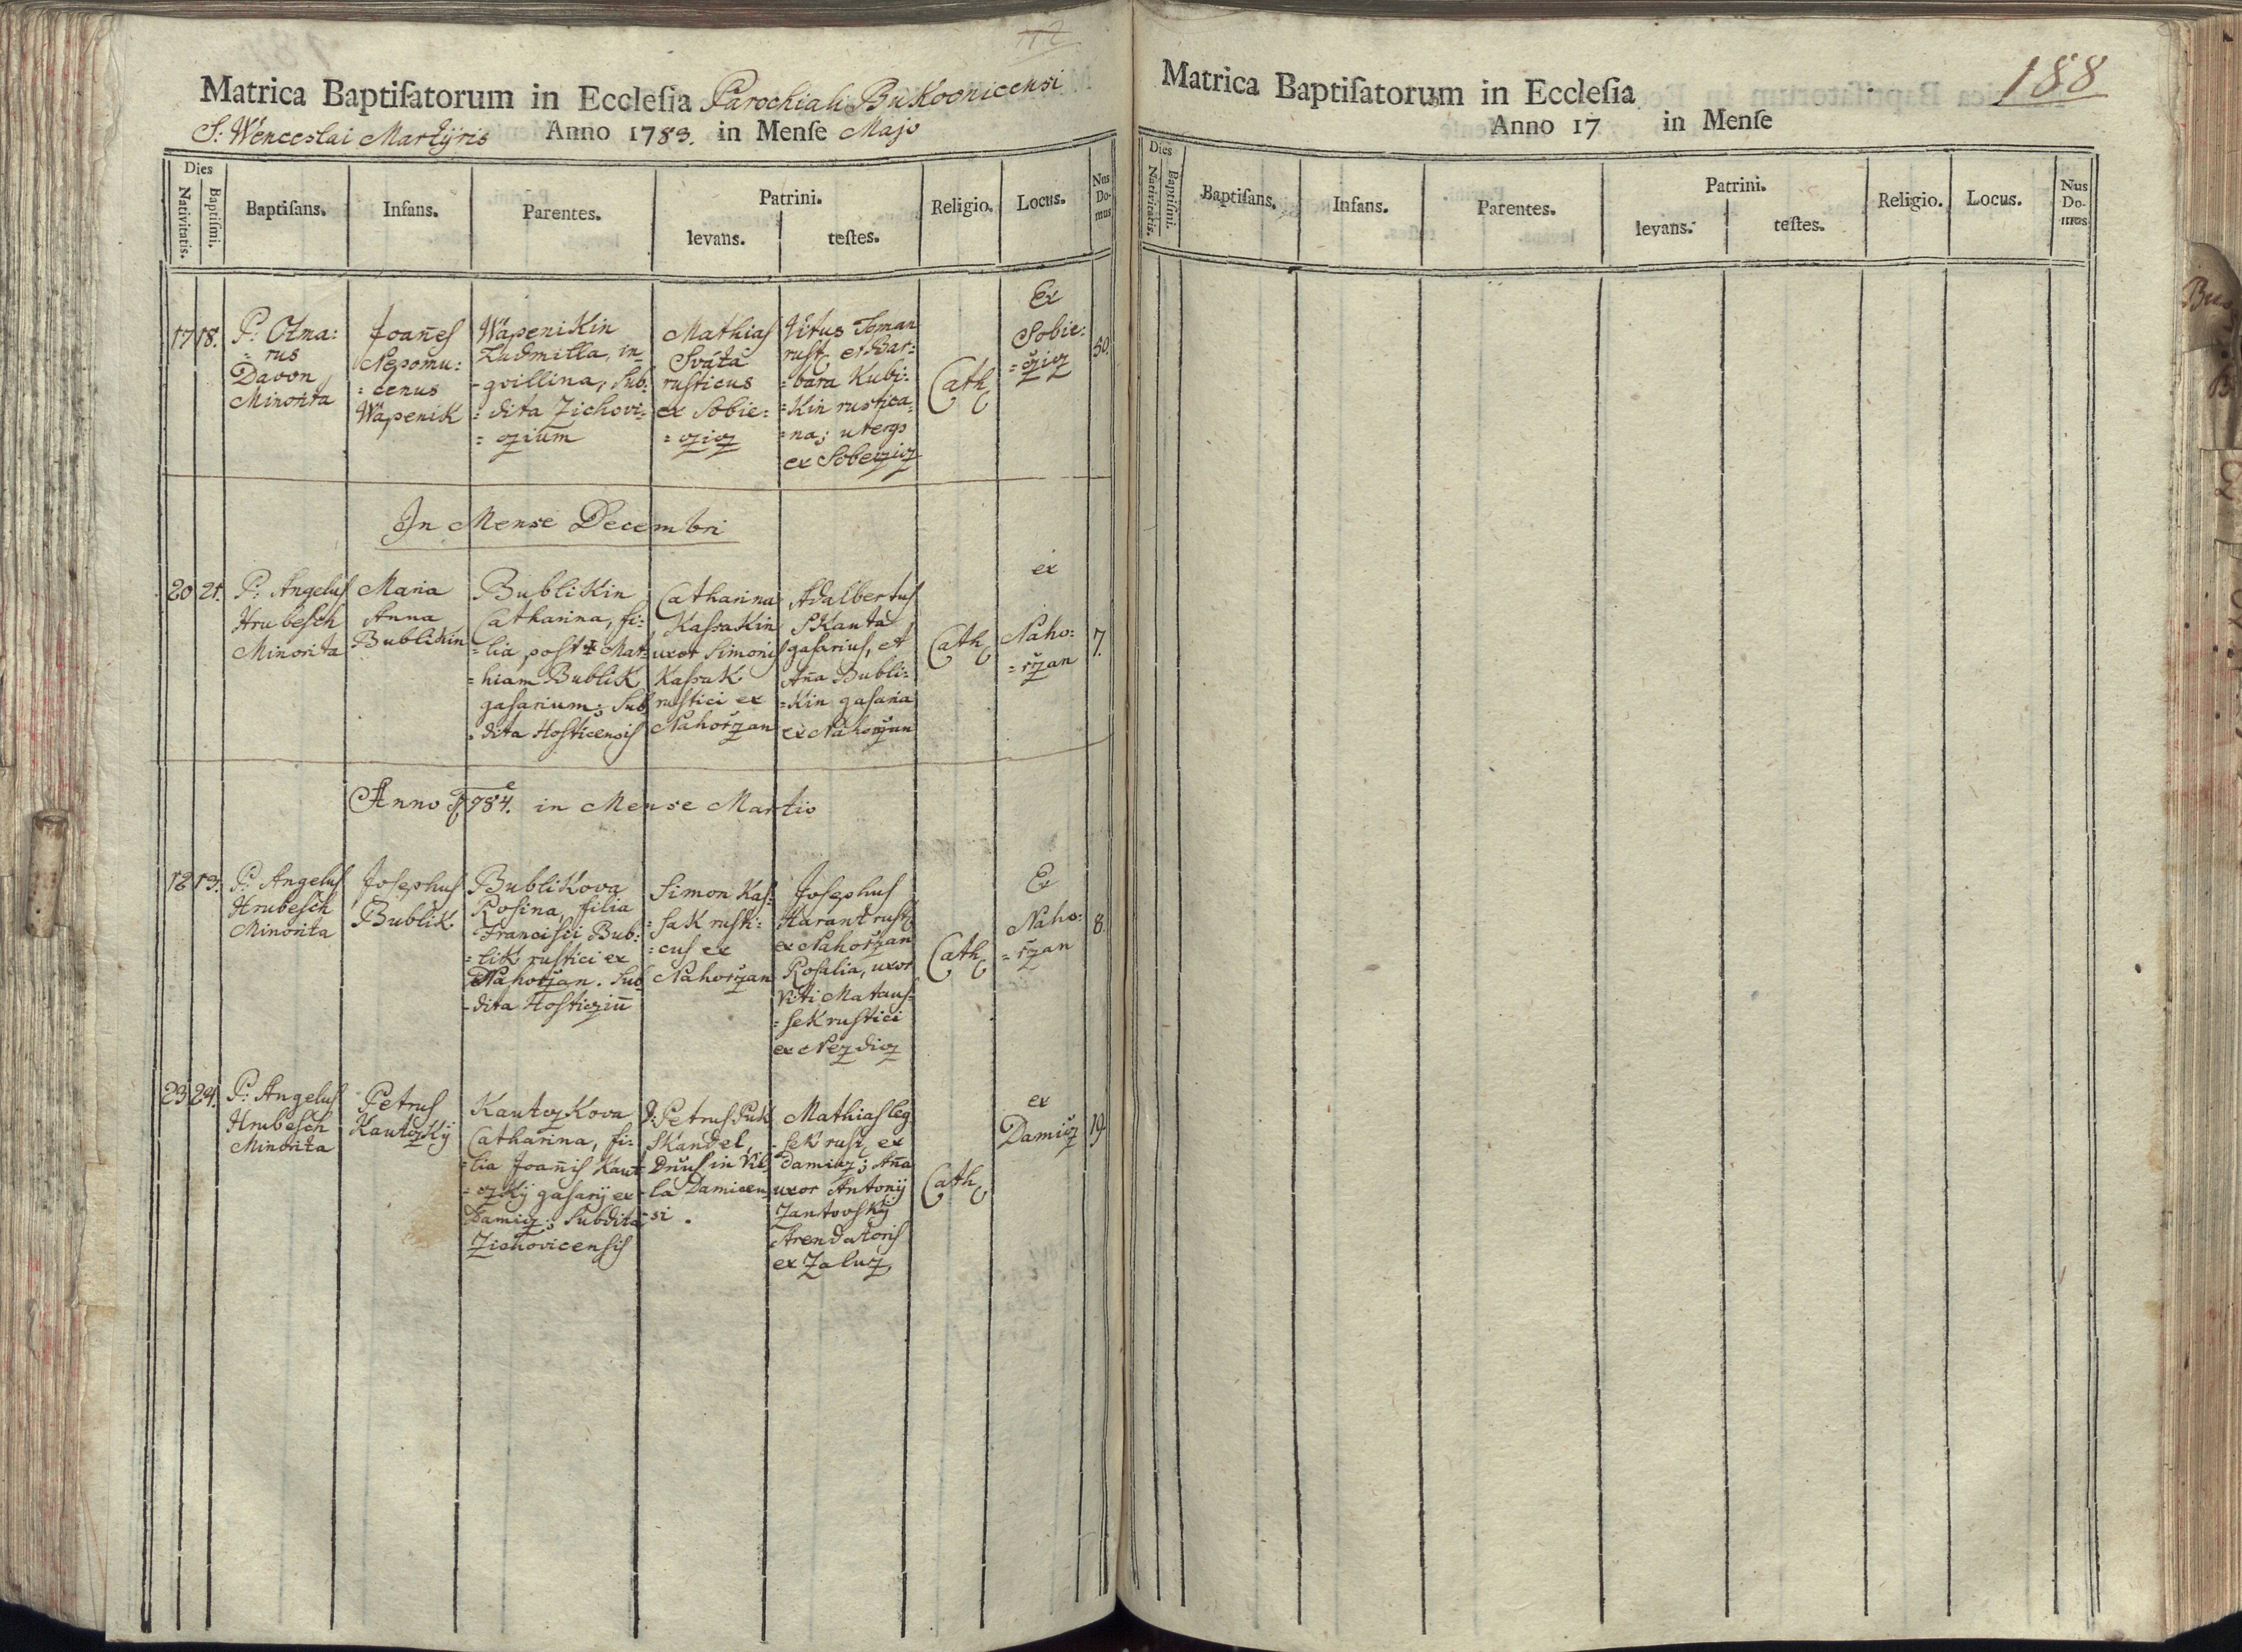 Matrica Baptiſatorum in Eccleſia Parochiali Bukovnicensi
S: Wenceslai Martÿris Anno 1783. in Menſe Majo
Dies
Nativitatis.
Baptiſmi.
Baptiſans.
Infans.
Parentes.
Patrini.
levans.
teſtes.
Religio.
Locus.
Nus
Do-
mus
17 18.
P: Otma:
= rus
Davon
Minorita
Joañes
Nepomu:
= cenus
Wápenik
Wápenikin
Ludmilla, in-
- qvillina, Sub:
= dita Zichovi-
= czium
Mathias
Sváta
rusticus
ex Sobie:
= czicz
Vitus Toman
rust, et Bar:
= bara Kubi:
= kin rustica-
= na; utergs
ex Sobeiczicz
Cath
Ex
Sobie:
= čzicz
50.
In Mense Decembri
20 21.
P: Angelus
Hrubesch
Minorita
Maria
Anna
Bublikin
Bublikin
Catharina, fi:
= lia post ‡ Mat-
= hiam Bublik
gasarium; Sub
= dita Hosticensis
Catharina
Kassakin
uxor Simonis
Kassak
rustici ex
Nahořzan
Adalbertus
Skauta
gasarius, et
Aña Bubli:
= kin gasaria
ex Nahorzan
Cath
ex
Naho:
= ržan
7.
Anno 1784. in Mense Martio
12 13.
P: Angelus
Hrubesch
Minorita
Josephus
Bublik
Bublikova
Rosina, filia
Francisci Bub:
= lik rustici ex
Nahoržan. Sub
- dita Hosticziū
Simon Kas:
= sak rusti:
= cus ex
Nahoržan
Josephus
Harant rust
ex Nahoržan
Rosalia, uxor
Viti Mataus-
= sek rustici
ex Nezdicz
Cath
Ex
Naho:
= ržan
8.
23 24.
P: Angelus
Hrubesch
Minorita
Petrus
Kautczkÿ
Kautczkova
Catharina, fi:
= lia Joañis Kaut
= czkÿ gasarÿ ex
Damicz; Subdita
Zichovicensis
D: Petrus Puk
Skandel,
Dñus in Vil
la Damicen
- si.
Mathias Leg
- sek rust, ex
Damicz; Aña
uxor Antonÿ
Zantovskÿ
Arendatoris
ex Zalucz
Cath
ex
Damicz
19.
Matrica Baptiſatorum in Eccleſia
188
Anno 17 in Menſe
Dies
Nativitatis.
Baptiſmi.
Baptiſans.
Infans.
Parentes.
Patrini.
levans.
teſtes.
Religio.
Locus.
Nus
Do-
mus